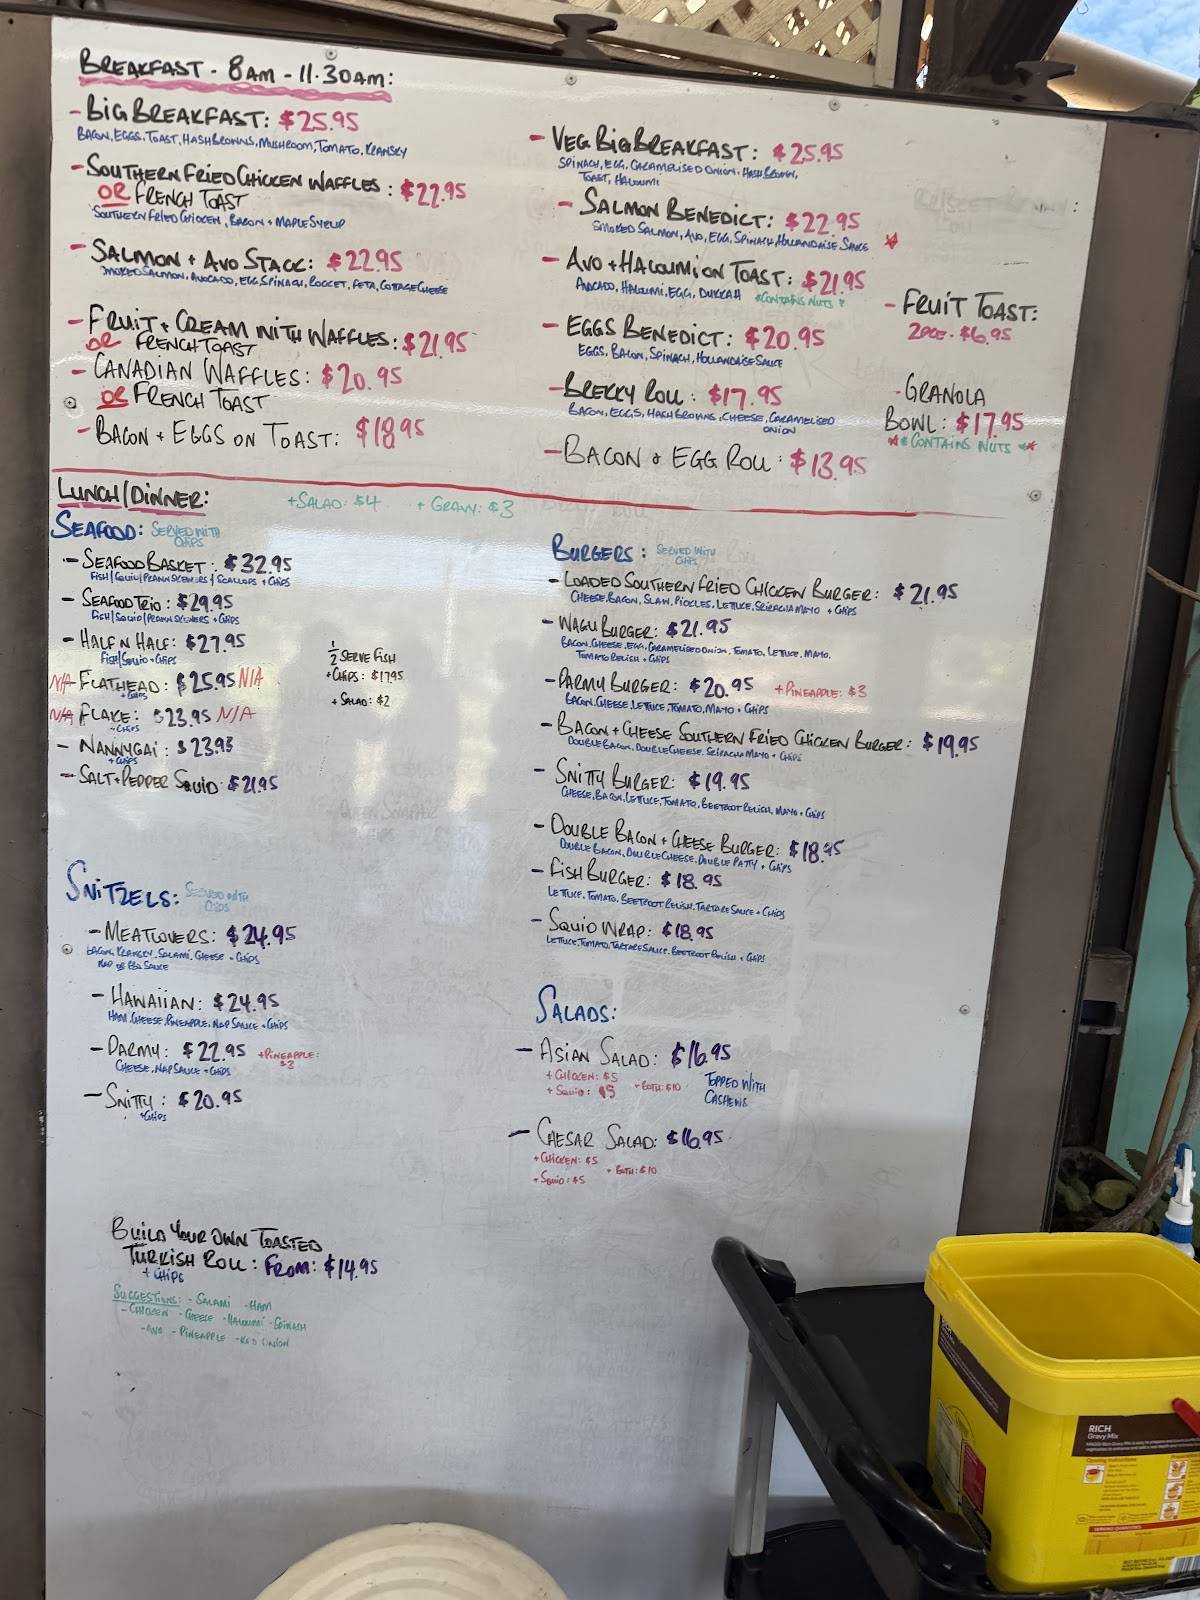 BREAKFAST - 8AM - 11.30AM:
- BIG BREAKFAST: $25.95
BACON, EGGS, TOAST, HASHBROWNS, MUSHROOM, TOMATO, KRANSKY
- SOUTHERN FRIED CHICKEN WAFFLES: $22.95
OR FRENCH TOAST
SOUTHERN FRIED CHICKEN, BACON + MAPLE SYRUP
- SALMON + AVO STACK: $22.95
SMOKED SALMON, AVOCADO, EGG, SPINACH, ROCKET, FETA, COTTAGE CHEESE
- FRUIT + CREAM WITH WAFFLES: $21.95
OR FRENCH TOAST
- CANADIAN WAFFLES: $20.95
OR FRENCH TOAST
- BACON + EGGS ON TOAST: $18.95
- VEG BIG BREAKFAST: $25.95
SPINACH, EGG, CARAMELISED ONION, HASH BROWN,
TOAST, HALOUMI
- SALMON BENEDICT: $22.95
SMOKED SALMON, AVO, EGG, SPINACH HOLLANDAISE SAUCE
- AVO + HALOUMI ON TOAST: $21.95
AVOCADO, HALOUMI, EGG, DUKKAH *CONTAINS NUTS *
- EGGS BENEDICT: $20.95
EGGS, BACON, SPINACH, HOLLANDAISE SAUCE
- BREKKY ROLL: $17.95
BACON, EGGS, HASHBROWNS, CHEESE, CARAMELISED
ONION
- BACON + EGG ROLL: $13.95
- FRUIT TOAST:
2PCE - $6.95
- GRANOLA
BOWL: $17.95
** CONTAINS NUTS **
LUNCH/DINNER: +SALAD: $4 + GRAVY: $3
SEAFOOD: SERVED WITH
CHIPS
- SEAFOOD BASKET: $32.95
FISH/SQUID/PRAWN SKEWERS/SCALLOPS + CHIPS
- SEAFOOD TRIO: $29.95
FISH/SQUID/PRAWN SKEWERS + CHIPS
- HALF N HALF: $27.95
FISH/SQUID + CHIPS
N/A FLATHEAD: $25.95 N/A
+ CHIPS
N/A FLAKE: $23.95 N/A
+ CHIPS
- NANNYGAI: $23.95
+ CHIPS
- SALT + PEPPER SQUID: $21.95
1/2 SERVE FISH
+ CHIPS: $17.95
+ SALAD: $2
SNITZELS: SERVED WITH
CHIPS
- MEATLOVERS: $24.95
BACON, KRANSKY, SALAMI, CHEESE + CHIPS
NAP OR BBQ SAUCE
- HAWAIIAN: $24.95
HAM, CHEESE, PINEAPPLE, NAP SAUCE + CHIPS
- PARMY: $22.95 +PINEAPPLE:
$3
CHEESE, NAP SAUCE + CHIPS
- SNITTY: $20.95
+ CHIPS
BUILD YOUR OWN TOASTED
TURKISH ROLL: FROM: $14.95
+ CHIPS
SUGGESTIONS: - SALAMI - HAM
- CHICKEN - CHEESE - HALOUMI - SPINACH
- AVO - PINEAPPLE - RED ONION
BURGERS: SERVED WITH
CHIPS
- LOADED SOUTHERN FRIED CHICKEN BURGER: $21.95
CHEESE, BACON, SLAW, PICKLES, LETTUCE, SRIRACHA MAYO + CHIPS
- WAGU BURGER: $21.95
BACON, CHEESE, EGG, CARAMELISED ONION, TOMATO, LETTUCE, MAYO,
TOMATO RELISH + CHIPS
- PARMY BURGER: $20.95 + PINEAPPLE: $3
BACON, CHEESE, LETTUCE, TOMATO, MAYO + CHIPS
- BACON + CHEESE SOUTHERN FRIED CHICKEN BURGER: $19.95
DOUBLE BACON, DOUBLE CHEESE, SRIRACHA MAYO + CHIPS
- SNITTY BURGER: $19.95
CHEESE, BACON, LETTUCE, TOMATO, BEETROOT RELISH, MAYO + CHIPS
- DOUBLE BACON + CHEESE BURGER: $18.95
DOUBLE BACON, DOUBLE CHEESE, DOUBLE PATTY + CHIPS
- FISH BURGER: $18.95
LETTUCE, TOMATO, BEETROOT RELISH, TARTARE SAUCE + CHIPS
- SQUID WRAP: $18.95
LETTUCE, TOMATO, TARTARE SAUCE, BEETROOT RELISH + CHIPS
SALADS:
- ASIAN SALAD: $16.95
+ CHICKEN: $5 + BOTH: $10 TOPPED WITH
+ SQUID: $5 CASHEWS
- CAESAR SALAD: $16.95
+ CHICKEN: $5 + BOTH: $10
+ SQUID: $5
RICH
Gravy Mix